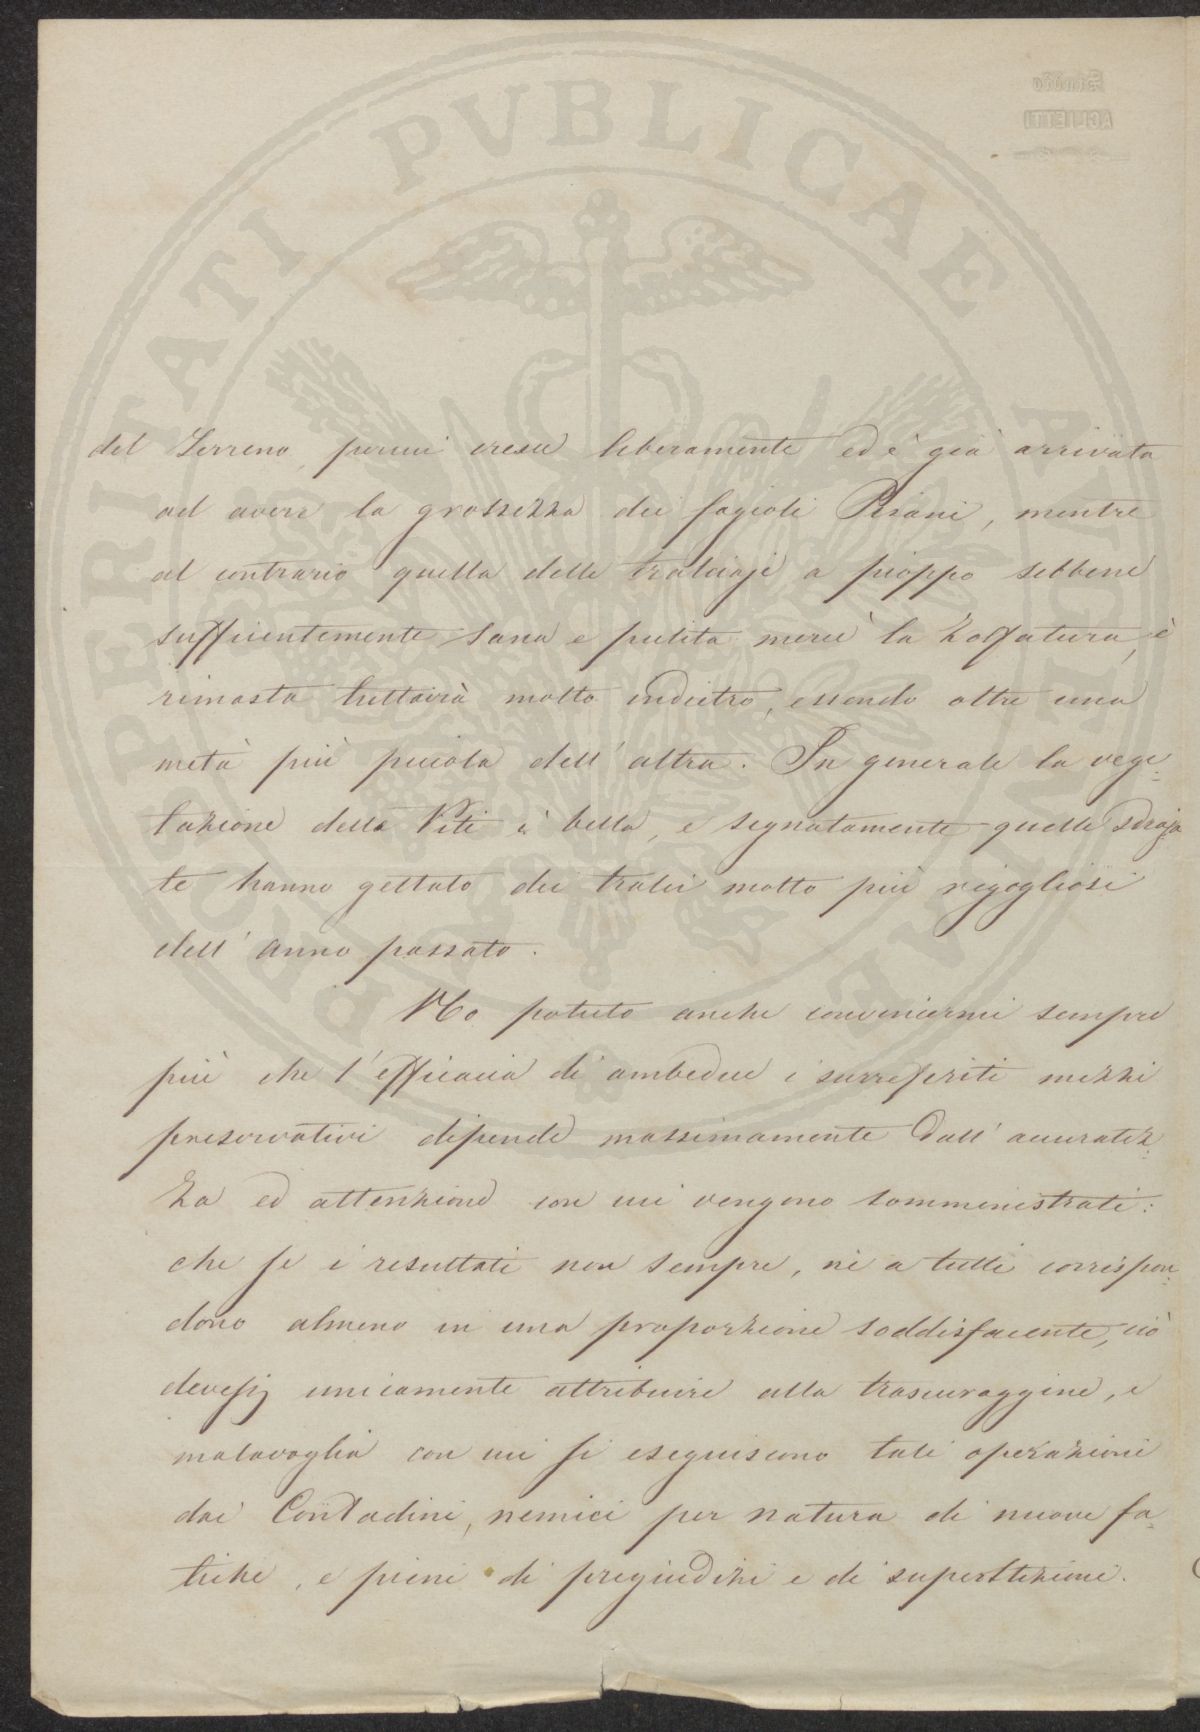 PROSPERITATI PUBLICAE AUGENDAE
AGLIETTI
del Terreno, perciò cresce liberamente ed è già arrivata
ad avere la grossezza dei fagioli Pisani, mentre
al contrario quella delle tralciaje a pioppo sebbene
sufficientemente sana e pulita mercè la Zolfatura, è
rimasta tuttavia molto indietro, essendo oltre una
metà più piccola dell' altra. In generale la vege-
tazione delle Viti è bella, e segnatamente quelle sdraja-
te hanno gettato dei tralci molto più rigogliosi
dell' anno passato.
Ho potuto anche convincermi sempre
più che l' efficacia di ambedue i surreferiti mezzi
preservativi dipende massimamente dall' accuratez-
za ed attenzione con cui vengono somministrati:
che se i resultati non sempre, nè a tutti corrispon-
dono almeno in una proporzione soddisfacente, ciò
devesi unicamente attribuire alla trascuraggine, e
malavoglia con cui si eseguiscono tali operazioni
dai Contadini, nemici per natura di nuove fa-
tiche, e pieni di pregiudizi e di superstizioni.